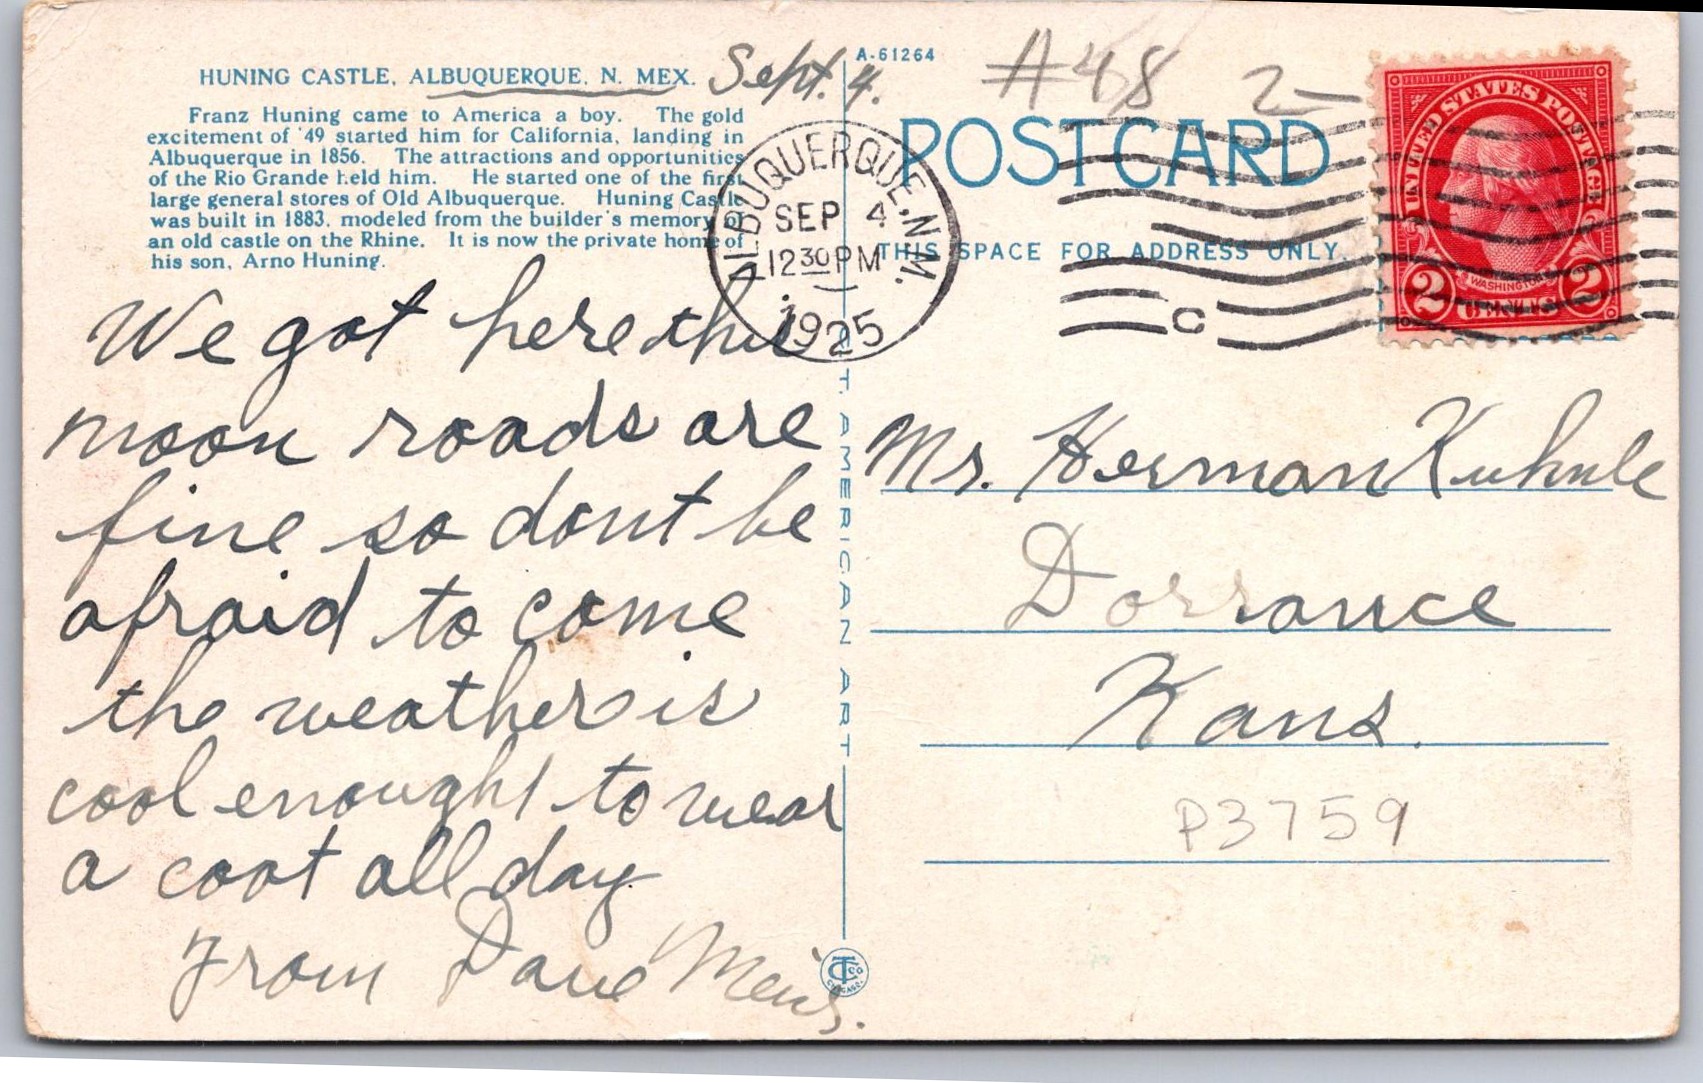 HUNING CASTLE, ALBUQUERQUE, N. MEX.
Sept. 4.
Franz Huning came to America a boy. The gold
excitement of '49 started him for California, landing in
Albuquerque in 1856. The attractions and opportunities
of the Rio Grande held him. He started one of the first
large general stores of Old Albuquerque. Huning Castle
was built in 1883, modeled from the builder's memory of
an old castle on the Rhine. It is now the private home of
his son, Arno Huning.
We got here this
moon roads are
fine so dont be
afraid to come
the weather is
cool enought to wear
a coat all day
From Dave
A-61264
#48 2-
POST CARD
THIS SPACE FOR ADDRESS ONLY.
ALBUQUERQUE, N.M.
SEP 4
12 30 PM
1925
C
UNITED STATES POSTAGE
WASHINGTON
2 CENTS 2
T. AMERICAN ART
CT CO
CHICAGO
Mr. Herman Kuhnle
Dorrance
Kans.
P3759